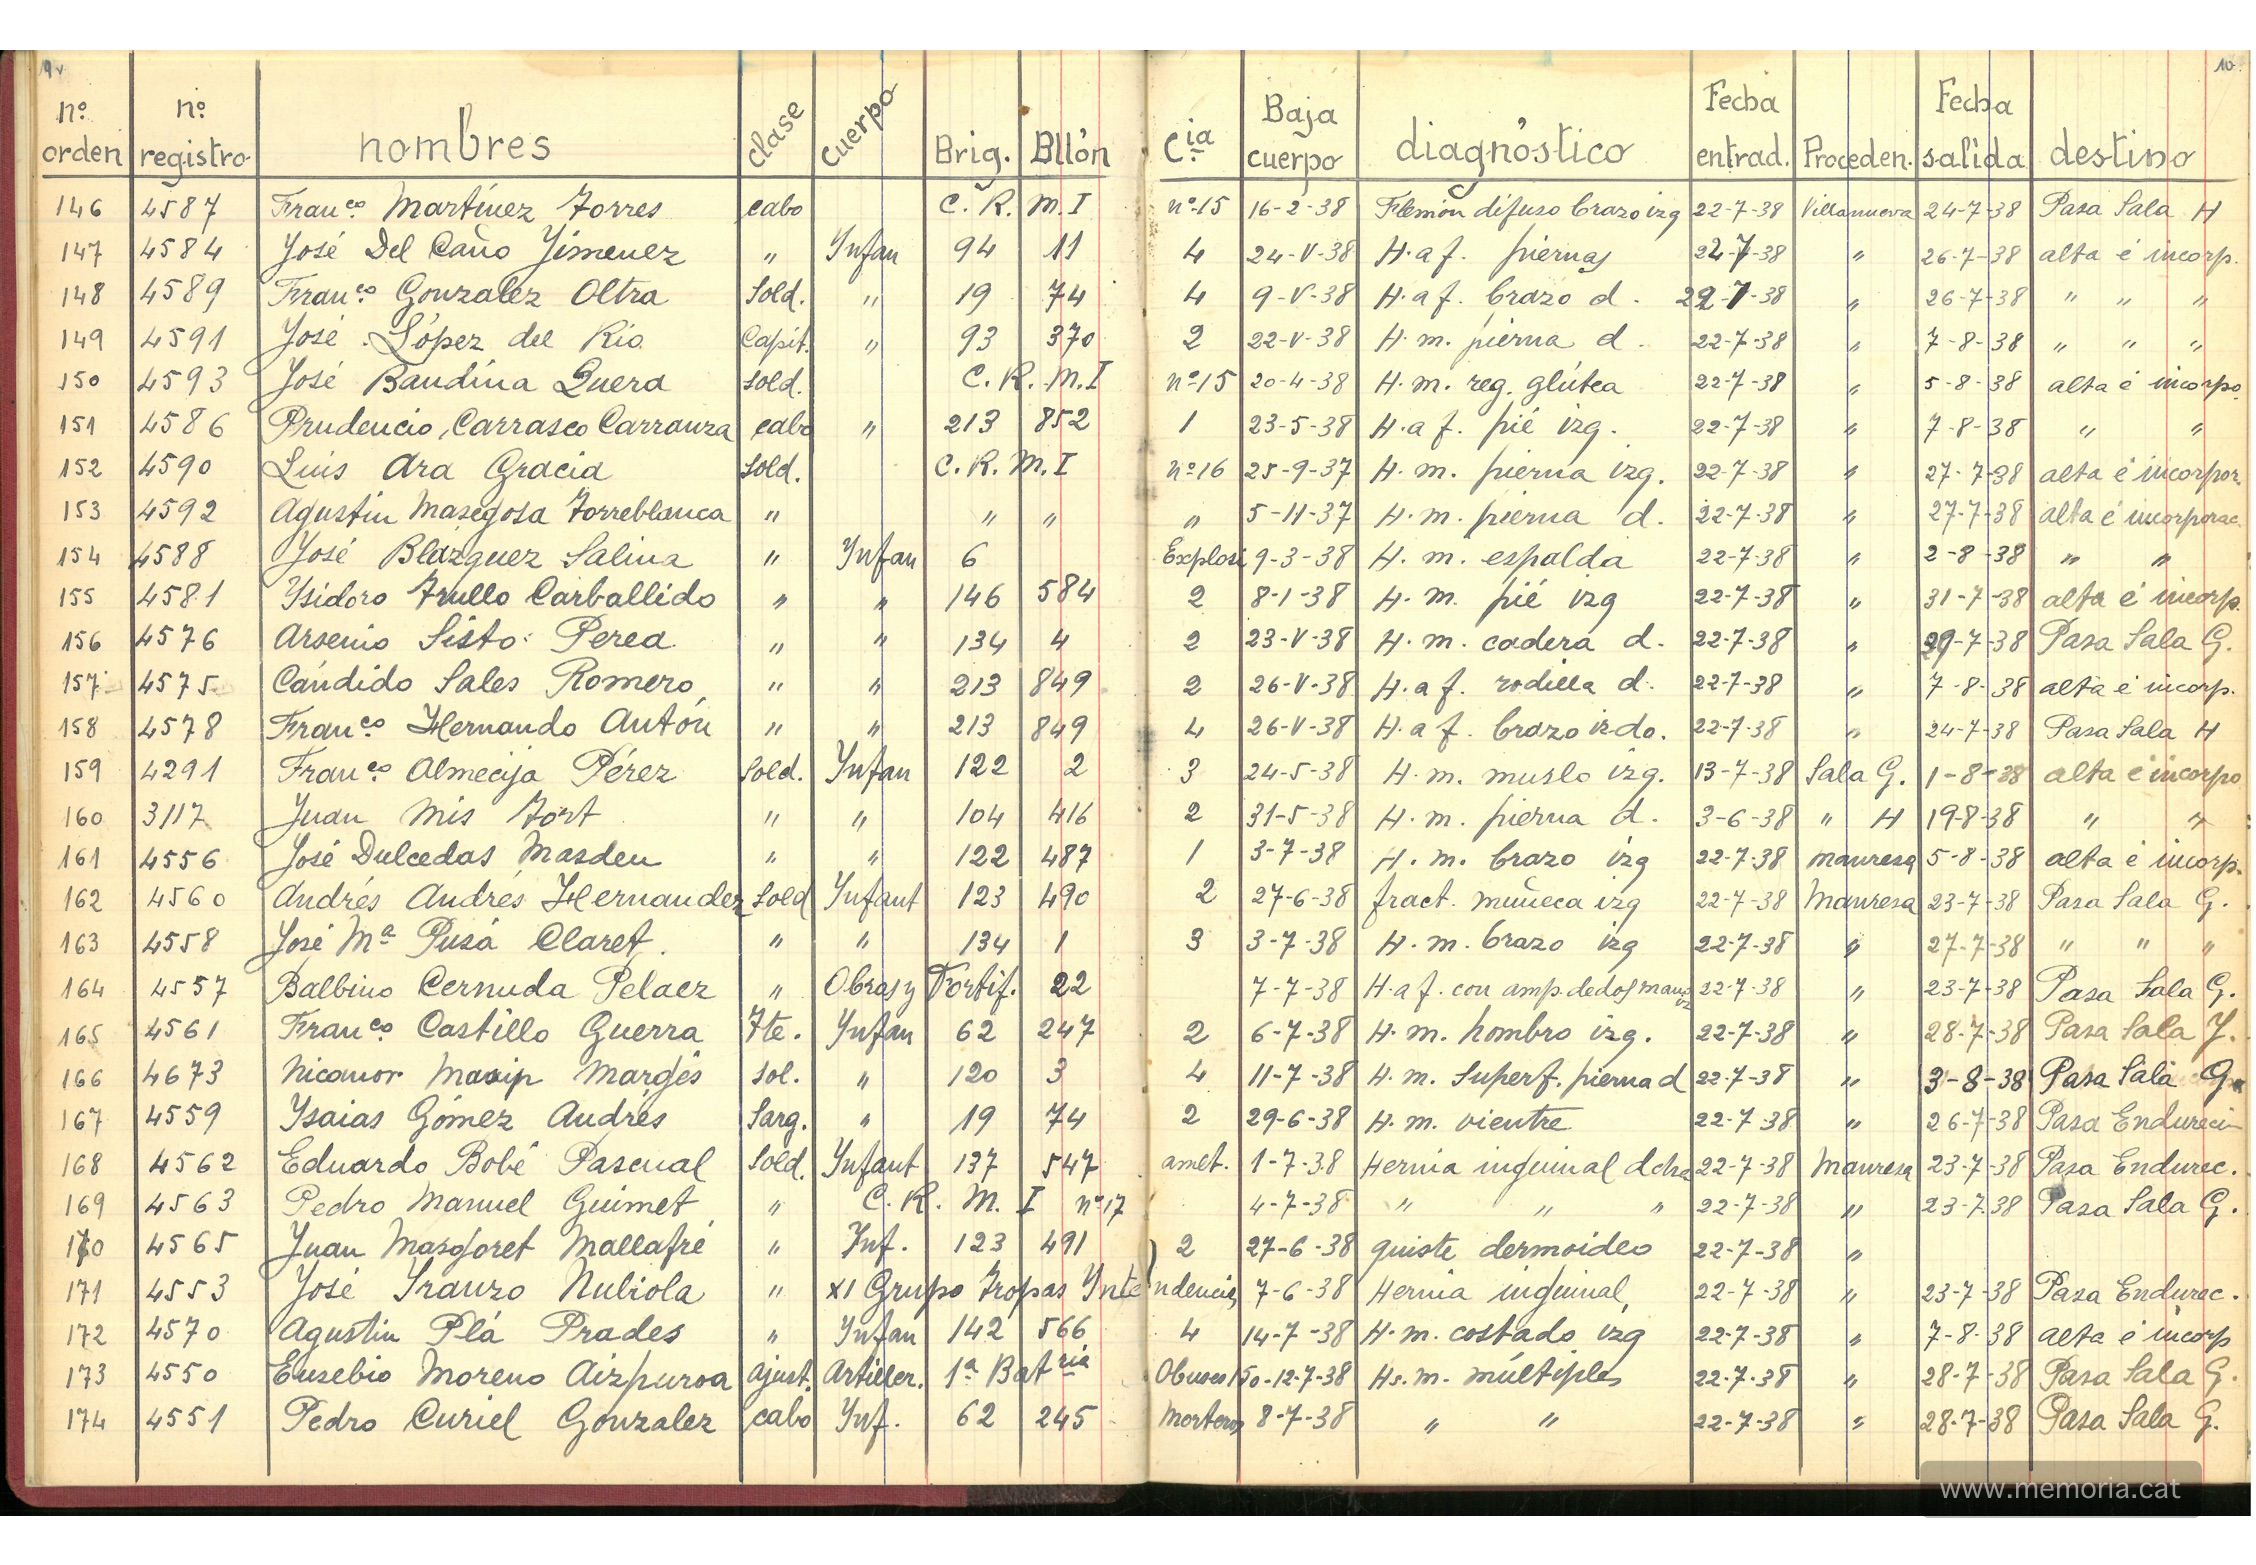 9v
10
nº orden nº registro nombres clase Cuerpo Brig. Bllón Cía Baja cuerpo diagnóstico Fecha entrad. Proceden. Fecha salida destino
146 4587 Franco. Martínez Torres cabo C. R. M. I nº 15 16-2-38 Flemón difuso brazo izq 22-7-38 Villanueva 24-7-38 Pasa Sala H
147 4584 José Del Caño Jimenez " Infan 94 11 4 24-V-38 H. a f. piernas 22-7-38 " 26-7-38 alta é incorp.
148 4589 Franco. Gonzalez Oltra Sold. " 19 74 4 9-V-38 H. a f. brazo d. 22-7-38 " 26-7-38 " " "
149 4591 José López del Río Capit. " 93 370 2 22-V-38 H. m. pierna d. 22-7-38 " 7-8-38 " " "
150 4593 José Bandina Quera Sold. C. R. M. I nº 15 20-4-38 H. m. reg. glútea 22-7-38 " 5-8-38 alta é incorpo.
151 4586 Prudencio Carrasco Carranza cabo " 213 852 1 23-5-38 H. a f. pié izq. 22-7-38 " 7-8-38 " "
152 4590 Luis Ara Gracia Sold. C. R. M. I nº 16 25-9-37 H. m. pierna izq. 22-7-38 " 27-7-38 alta é incorpor.
153 4592 Agustín Masegosa Torreblanca " " " " 5-11-37 H. m. pierna d. 22-7-38 " 27-7-38 alta é incorporac
154 4588 José Blázquez Salina " Infan 6 Explosi 9-3-38 H. m. espalda 22-7-38 " 2-8-38 " "
155 4581 Ysidoro Trullo Carballido " " 146 584 2 8-1-38 H. m. pié izq 22-7-38 " 31-7-38 alta é incorp.
156 4576 Arsenio Sisto Perea " " 134 4 2 23-V-38 H. m. cadera d. 22-7-38 " 29-7-38 Pasa Sala G.
157 4575 Cándido Sales Romero " " 213 849 2 26-V-38 H. a f. rodilla d. 22-7-38 " 7-8-38 alta é incorp.
158 4578 Franco. Hernando Antón " " 213 849 4 26-V-38 H. a f. brazo izdo. 22-7-38 " 24-7-38 Pasa Sala H
159 4291 Franco. Almecija Pérez Sold. Infan 122 2 3 24-5-38 H. m. muslo izq. 13-7-38 Sala G. 1-8-38 alta é incorpo
160 3117 Juan Mis Fort " " 104 416 2 31-5-38 H. m. pierna d. 3-6-38 " H 19-8-38 " "
161 4556 José Dulcedas Masdeu " " 122 487 1 3-7-38 H. m. brazo izq 22-7-38 Manresa 5-8-38 alta é incorp.
162 4560 Andrés Andrés Hernandez Sold Infant 123 490 2 27-6-38 fract. muñeca izq 22-7-38 Manresa 23-7-38 Pasa Sala G.
163 4558 José Mª Pusá Claret. " " 134 1 3 3-7-38 H. m. brazo izq 22-7-38 " 27-7-38 " " "
164 4557 Balbino Cernuda Pelaez " Obras y Fortif. 22 7-7-38 H. a f. con amp. dedos mano iz 22-7-38 " 23-7-38 Pasa Sala G.
165 4561 Franco. Castillo Guerra Tte. Infan 62 247 2 6-7-38 H. m. hombro izq. 22-7-38 " 28-7-38 Pasa Sala J.
166 4673 Nicanor Masip Margés Sol. " 120 3 4 11-7-38 H. m. Superf. pierna d 22-7-38 " 3-8-38 Pasa Sala G.
167 4559 Ysaias Gómez Andrés Sarg. " 19 74 2 29-6-38 H. m. vientre 22-7-38 " 26-7-38 Pasa Endureci-
168 4562 Eduardo Bobé Pascual Sold. Infant 137 547 amet. 1-7-38 Hernia inguinal dcha 22-7-38 Manresa 23-7-38 Pasa Endurec.
169 4563 Pedro Manuel Guimet " C. R. M. I nº 17 4-7-38 " " " 22-7-38 " 23-7-38 Pasa Sala G.
170 4565 Juan Masgoret Mallafré " Inf. 123 491 2 27-6-38 quiste dermoideo 22-7-38 "
171 4553 José Tranzo Nubiola " XI Grupo Tropas Intendencia 7-6-38 Hernia inguinal 22-7-38 " 23-7-38 Pasa Endurec.
172 4570 Agustín Plá Prades " Infan 142 566 4 14-7-38 H. m. costado izq 22-7-38 " 7-8-38 alta é incorp
173 4550 Eusebio Moreno Aizpuroa Ajust. Artiller. 1ª Batría Obuses 150 -12-7-38 Hs. m. múltiples 22-7-38 " 28-7-38 Pasa Sala G.
174 4551 Pedro Curiel Gonzalez cabo Inf. 62 245 Morteros 8-7-38 " " 22-7-38 " 28-7-38 Pasa Sala G.
www.memoria.cat